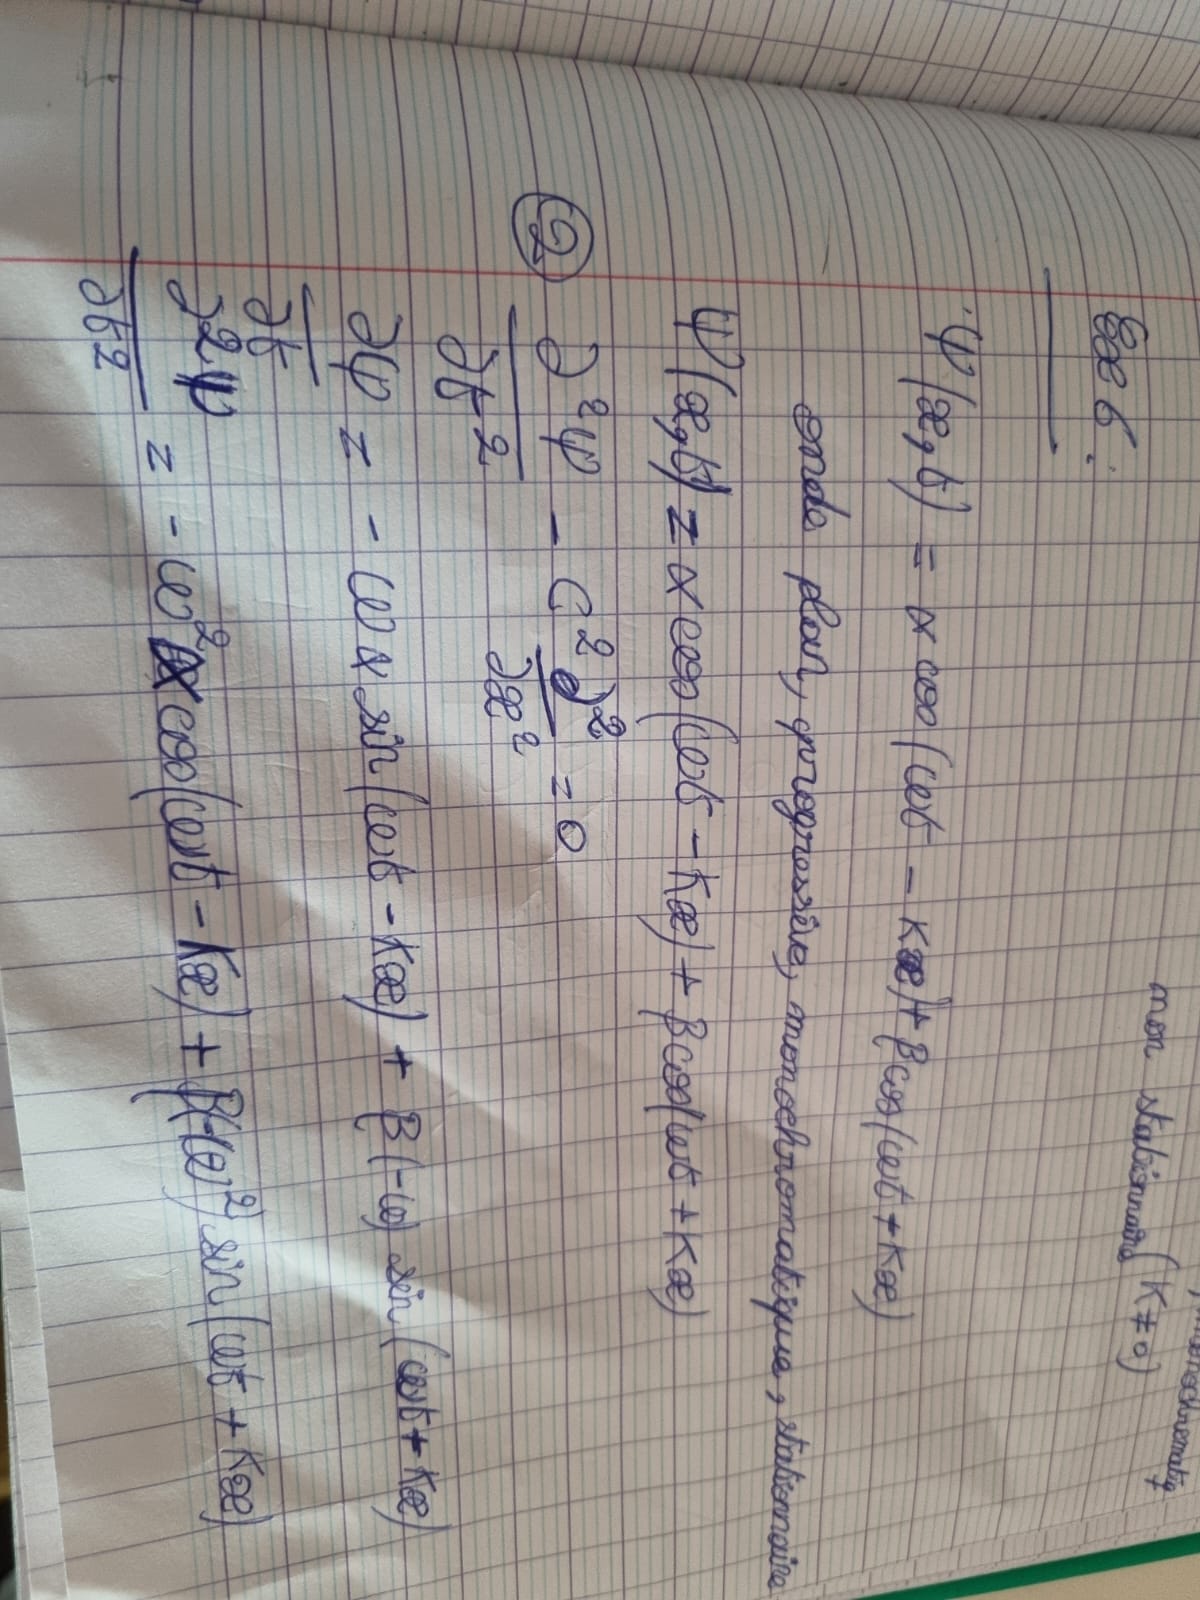 monochromatiq
non stationnaire (K ≠ 0)
Exe 6 :
Ψ(x,t) = α cos(ωt - Kx) + β cos(ωt + Kx)
onde plan, progressive, monochromatique, stationnaire
Ψ(x,t) = α cos(ωt - Kx) + β cos(ωt + Kx)
② ∂²Ψ/∂t² - C² ∂²/∂x² = 0
∂Ψ/∂t = - ω α sin(ωt - Kx) + β(-ω) sin(ωt + Kx)
∂²Ψ/∂t² = - ω² α cos(ωt - Kx) + β(-ω²) sin(ωt + Kx)